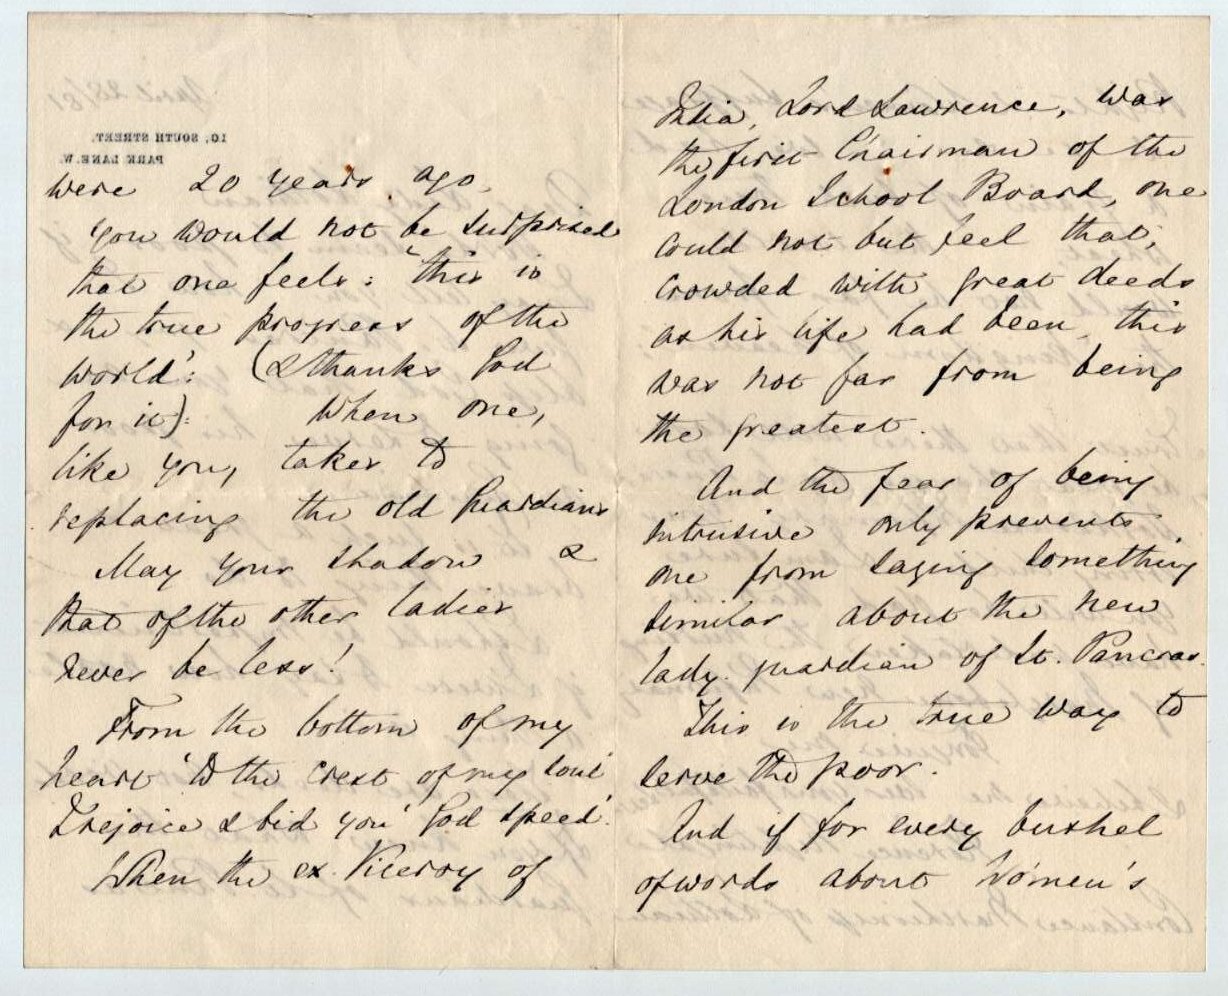 10, SOUTH STREET,
PARK LANE. W.
were 20 years ago,
you would not be surprised
that one feels: 'this is
the true progress of the
world': (& thanks God
for it): When one,
like you, takes to
replacing the old Guardians
May your shadow &
that of the other ladies
never be less!
From the bottom of my
heart 'to the crest of my soul'
I rejoice & bid you 'God speed'.
When the ex. Viceroy of
India, Lord Lawrence, was
the first Chairman of the
London School Board, one
could not but feel that,
crowded with great deeds
as his life had been, this
was not far from being
the greatest.
And the fear of being
intrusive only prevents
one from saying something
similar about the new
lady guardian of St. Pancras.
This is the true way to
serve the poor.
And if for every bushel
of words about Women's